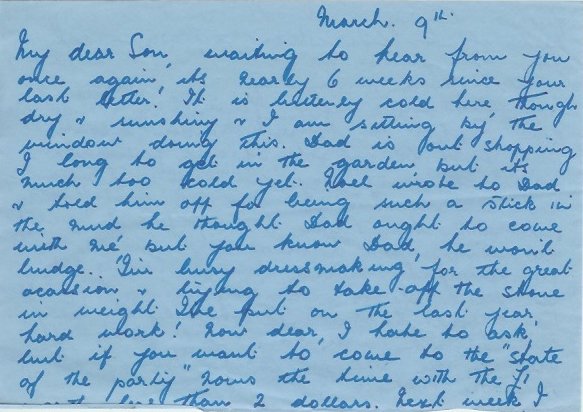 March. 9th.
My dear Son, waiting to hear from you
once again, its nearly 6 weeks since your
last letter! It is bitterly cold here, though
dry & sunshiny & I am sitting by the
window doing this. Dad is out shopping
I long to get in the garden but it's
much too cold yet. Noel wrote to Dad
& told him off for being such a stick in
the mud he thought Dad ought to come
with me but you know Dad, he won't
budge.. I'm busy dressmaking for the great
ocassion & trying to take off the stone
in weight I've put on the last year,
hard work! Now dear, I hate to ask,
but if you want to come to the "state
of the party" nows the time with the £1
than 2 dollars. Next week I